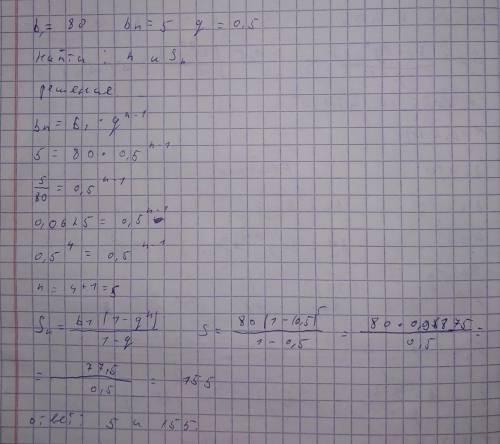 b₁ = 80 bn = 5 q = 0,5
найти: n и Sn
решение
bn = b₁ · q^(n-1)
5 = 80 · 0,5^(n-1)
5/80 = 0,5^(n-1)
0,0625 = 0,5^(n-1)
0,5^4 = 0,5^(n-1)
n = 4+1 = 5
Sn = b1(1-q^n)/(1-q) S = 80(1-(0,5)^5)/(1-0,5) = 80 · 0,96875/0,5 =
= 77,5/0,5 = 155
ответ: 5 и 155.